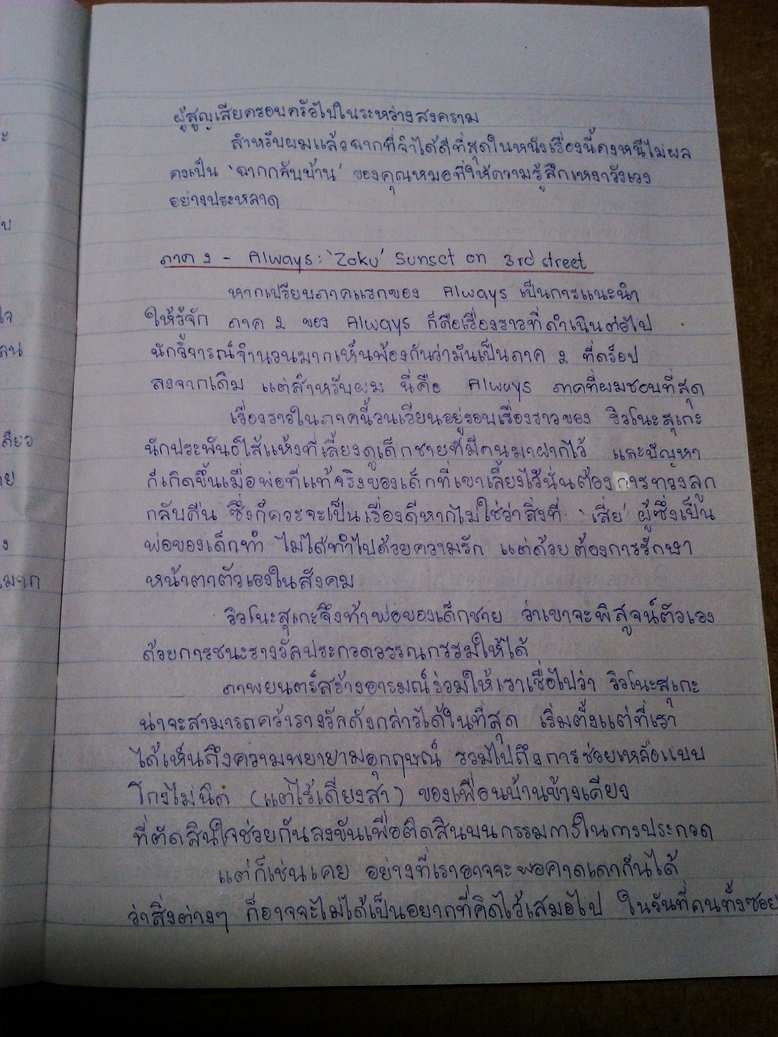 ผู้สูญเสียครอบครัวไปในระหว่างสงคราม
สำหรับผมแล้วฉากที่จำได้ดีที่สุดในหนังเรื่องนี้คงหนีไม่ผล
คงเป็น 'ฉากกลับบ้าน' ของคุณหมอที่ให้ความรู้สึกเหงาวังเวง
อย่างประหลาด
ภาค 2 - Always: 'Zoku' Sunset on 3rd street
หากเปรียบภาคแรกของ Always เป็นการแนะนำ
ให้รู้จัก ภาค 2 ของ Always ก็คือเรื่องราวที่ดำเนินต่อไป
นักวิจารณ์จำนวนมากเห็นพ้องกันว่ามันเป็นภาค 2 ที่ดร็อป
ลงจากเดิม แต่สำหรับผม นี่คือ Always ภาคที่ผมชอบที่สุด
เรื่องราวในภาคนี้วนเวียนอยู่รอบเรื่องราวของ ริวโนะสุเกะ
นักประพันธ์ไส้แห้งที่เลี้ยงดูเด็กชายที่มีคนมาฝากไว้ และปัญหา
ก็เกิดขึ้นเมื่อพ่อที่แท้จริงของเด็กที่เขาเลี้ยงไว้นั้นต้องการทวงลูก
กลับคืน ซึ่งก็ควรจะเป็นเรื่องดีหากไม่ใช่ว่าสิ่งที่ 'เสี่ย' ผู้ซึ่งเป็น
พ่อของเด็กทำ ไม่ได้ทำไปด้วยความรัก แต่ด้วยต้องการรักษา
หน้าตาตัวเองในสังคม
ริวโนะสุเกะจึงท้าพ่อของเด็กชาย ว่าเขาจะพิสูจน์ตัวเอง
ด้วยการชนะรางวัลประกวดวรรณกรรมให้ได้
ภาพยนตร์สร้างอารมณ์ร่วมให้เราเชื่อไปว่า ริวโนะสุเกะ
น่าจะสามารถคว้ารางวัลดังกล่าวได้ในที่สุด เริ่มตั้งแต่ที่เรา
ได้เห็นถึงความพยายามอุกฤษณ์ รวมไปถึงการช่วยเหลือแบบ
โกงไม่นิด (แต่ไร้เดียงสา) ของเพื่อนบ้านข้างเคียง
ที่ตัดสินใจช่วยกันลงขันเพื่อติดสินบนกรรมการในการประกวด
แต่ก็เช่นเคย อย่างที่เราอาจจะพอคาดเดากันได้
ว่าสิ่งต่างๆ ก็อาจจะไม่ได้เป็นอยากที่คิดไว้เสมอไป ในวันที่คนทั้งซอย